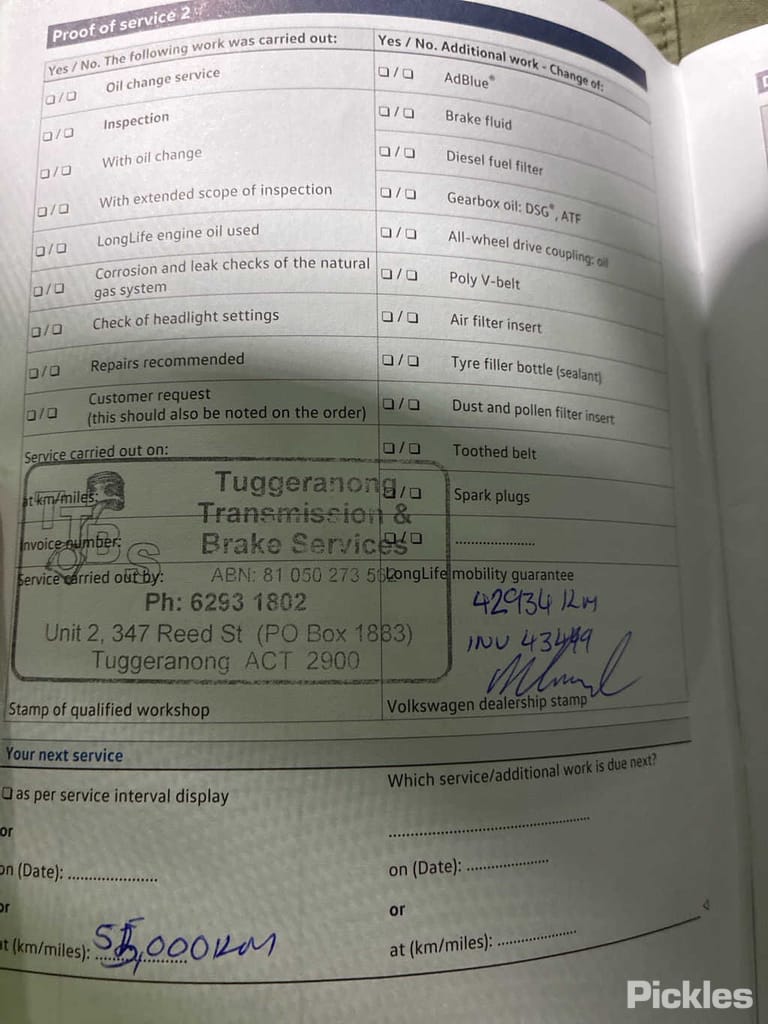 Proof of service 2
Yes / No. The following work was carried out:
❏ / ❏ Oil change service
❏ / ❏ Inspection
❏ / ❏ With oil change
❏ / ❏ With extended scope of inspection
❏ / ❏ LongLife engine oil used
❏ / ❏ Corrosion and leak checks of the natural
gas system
❏ / ❏ Check of headlight settings
❏ / ❏ Repairs recommended
❏ / ❏ Customer request
(this should also be noted on the order)
Service carried out on:
at km/miles:
Invoice number:
Service carried out by:
TTBS
Tuggeranong
Transmission &
Brake Services
ABN: 81 050 273 562
Ph: 6293 1802
Unit 2, 347 Reed St (PO Box 1883)
Tuggeranong ACT 2900
Stamp of qualified workshop
Yes / No. Additional work - Change of:
❏ / ❏ AdBlue®
❏ / ❏ Brake fluid
❏ / ❏ Diesel fuel filter
❏ / ❏ Gearbox oil: DSG®, ATF
❏ / ❏ All-wheel drive coupling: oil
❏ / ❏ Poly V-belt
❏ / ❏ Air filter insert
❏ / ❏ Tyre filler bottle (sealant)
❏ / ❏ Dust and pollen filter insert
❏ / ❏ Toothed belt
❏ / ❏ Spark plugs
❏ / ❏ ....................
LongLife mobility guarantee
42934 KM
INV 43449
Volkswagen dealership stamp
Your next service
❏ as per service interval display
or
on (Date): ....................
or
at (km/miles): 55,000KM
Which service/additional work is due next?
..................................................
on (Date): ....................
or
at (km/miles): ....................
Pickles